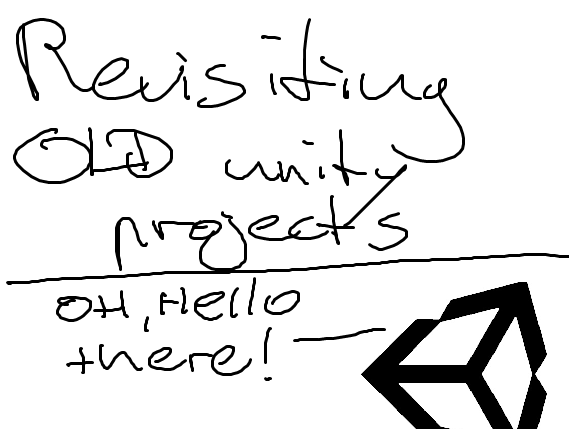 Revisiting
OLD unity
projects
OH, Hello
there!